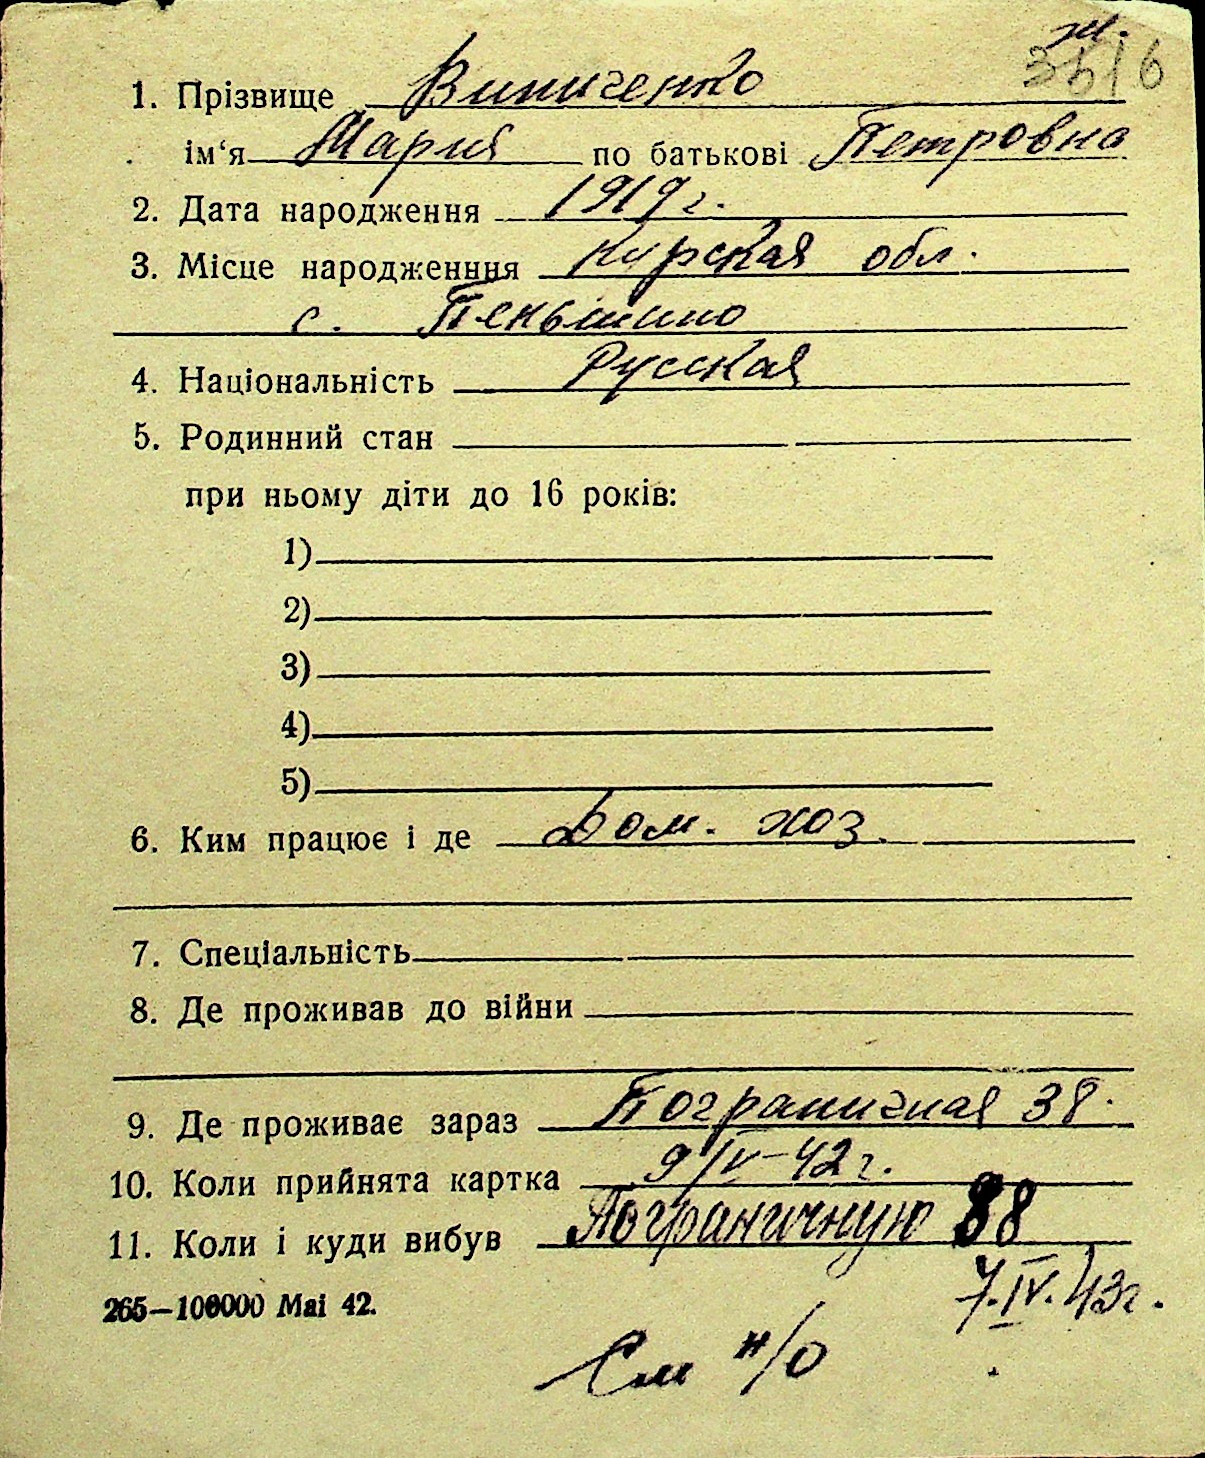 ж.
3516
1. Прізвище Виниченко
ім‘я Мария по батькові Петровна
2. Дата народження 1919 г.
3. Місце народженння Курская обл.
с. Пеньшино
4. Національність Русская
5. Родинний стан
при ньому діти до 16 років:
1)
2)
3)
4)
5)
6. Ким працює і де Дом. хоз.
7. Спеціальність
8. Де проживав до війни
9. Де проживає зараз Пограничная 38.
10. Коли прийнята картка 9/IV-42 г.
11. Коли і куди вибув Пограничную 88
265—100000 Mai 42.
7.IV.43 г.
См н/о